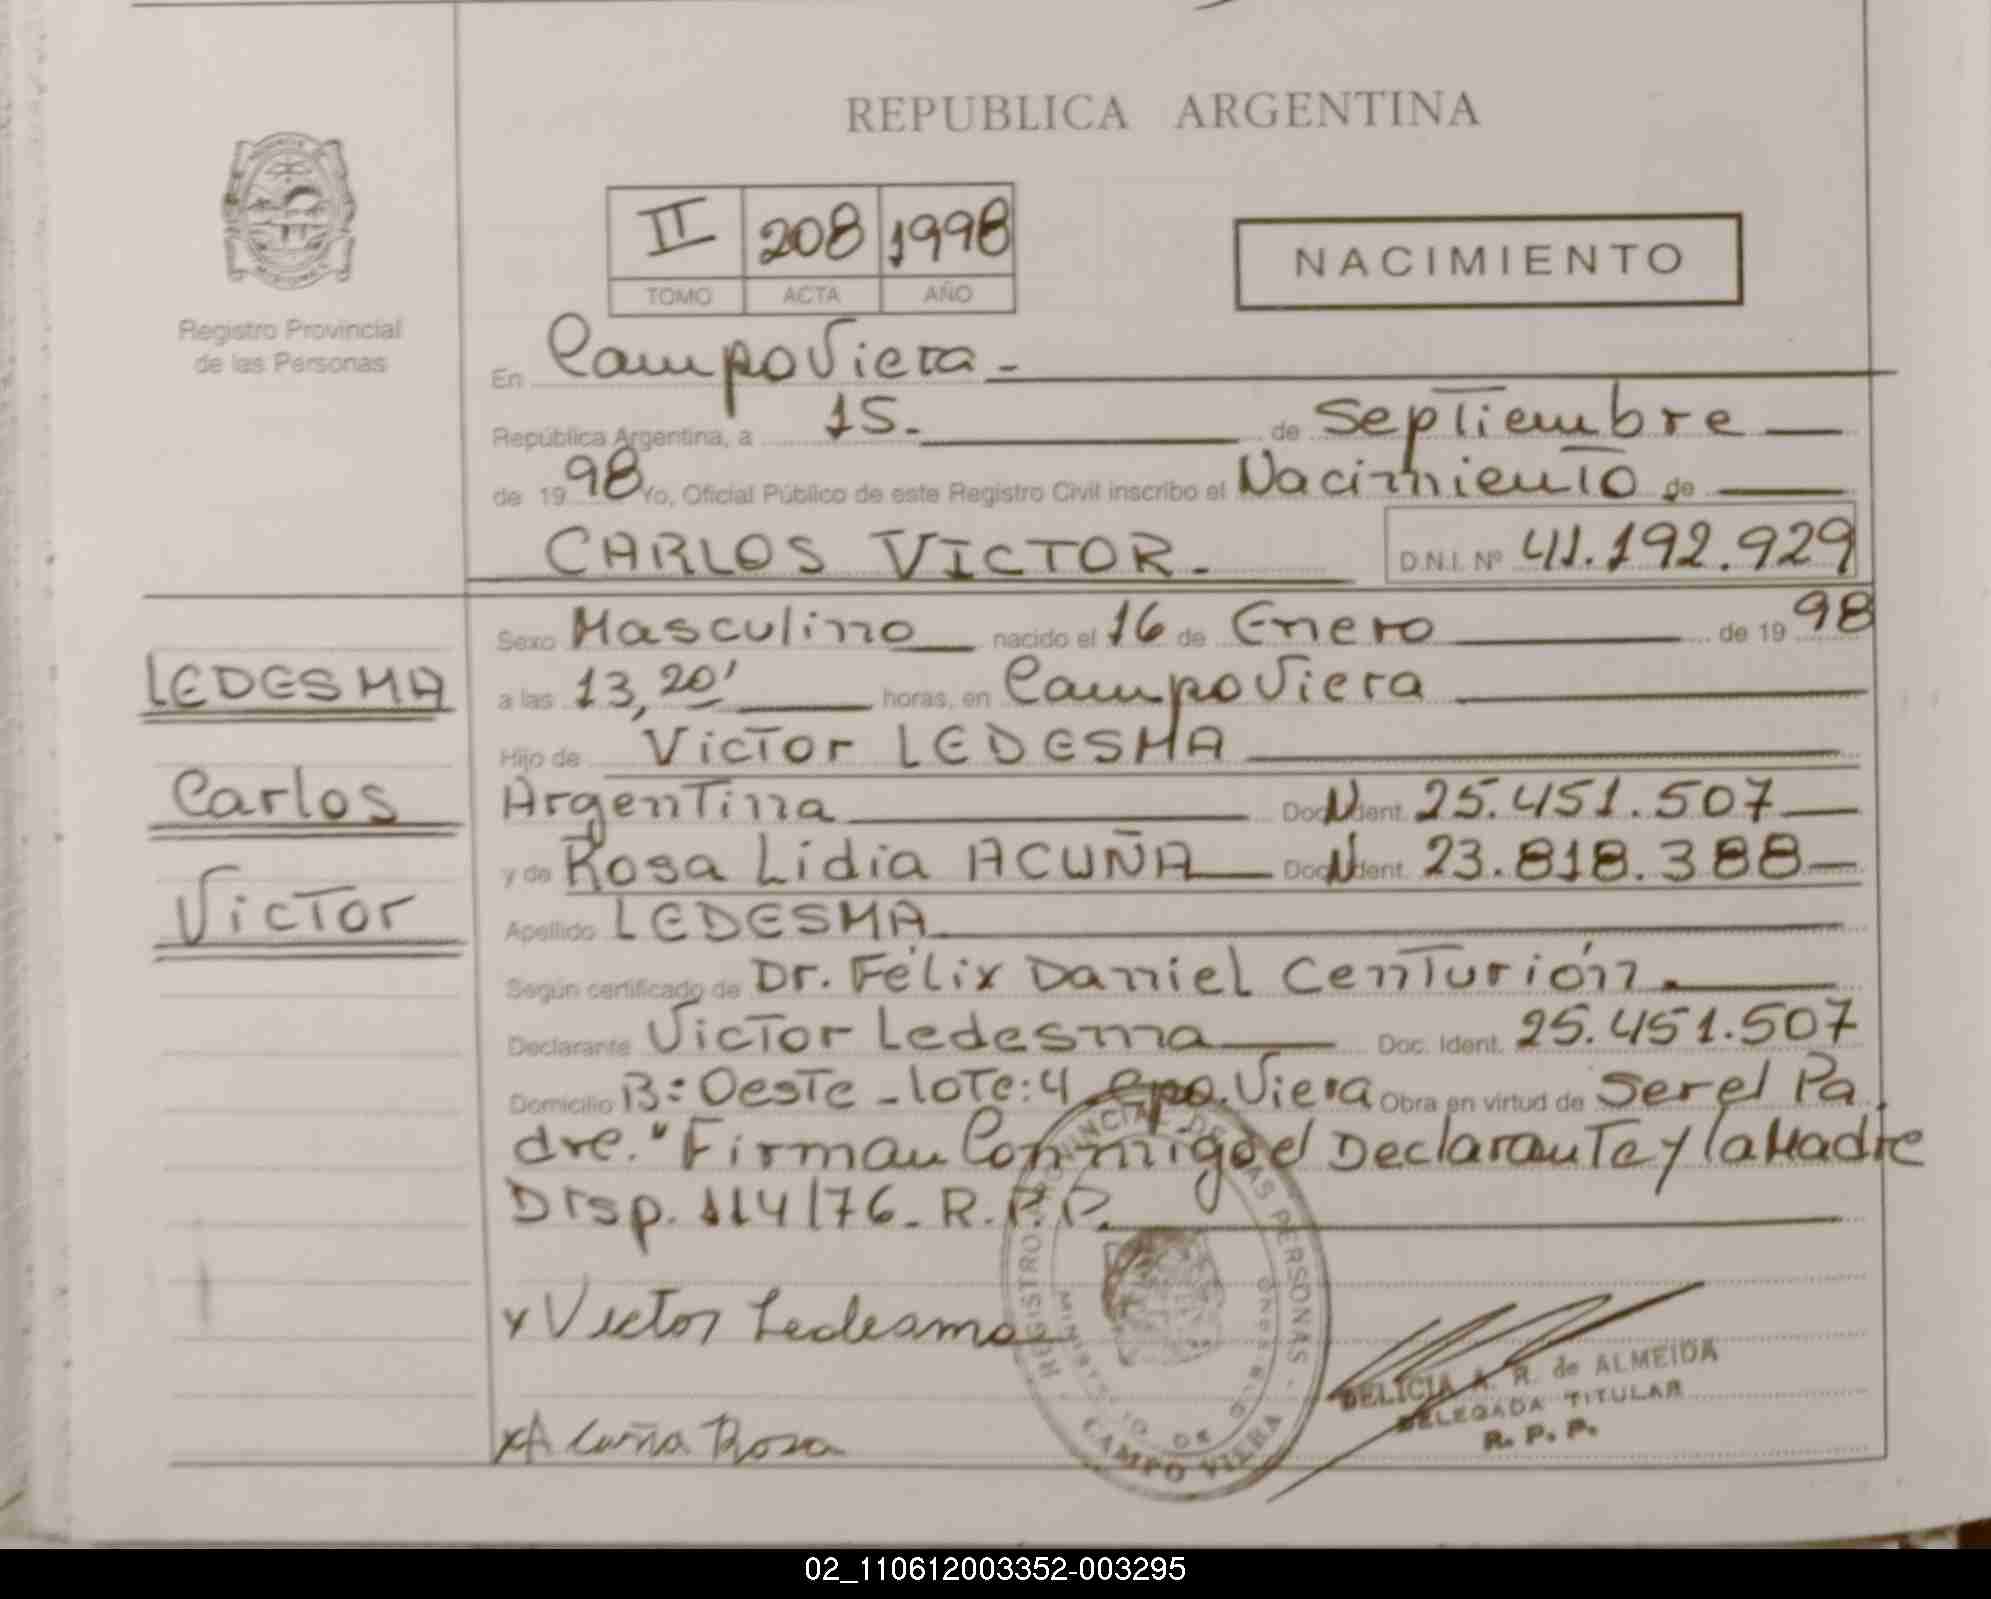 REPUBLICA ARGENTINA
II 208 1998
TOMO ACTA AÑO
NACIMIENTO
Registro Provincial
de las Personas
En Campo Viera -
República Argentina, a 15. de Septiembre
de 1998 Yo, Oficial Público de este Registro Civil inscribo el Nacimiento de
CARLOS VICTOR. D.N.I. Nº 41.192.929
LEDESMA
Carlos
Victor
Sexo Masculino nacido el 16 de Enero de 1998
a las 13,20' horas, en Campo Viera
Hijo de Victor LEDESMA
Argentina Doc. Ident. 25.451.507
y de Rosa Lidia ACUÑA Doc. Ident. 23.818.388
Apellido LEDESMA
Según certificado de Dr. Félix Daniel Centurión.
Declarante Victor Ledesma Doc. Ident. 25.451.507
Domicilio B: Oeste - lote: 4 Cpo. Viera Obra en virtud de Ser el Pa
dre. "Firman Conmigo el Declarante y la Madre
Disp. 114/76. R.P.P.
x Victor Ledesma
x Acuña Rosa
REGISTRO PROVINCIAL DE LAS PERSONAS
MINISTERIO DE GOBIERNO
CAMPO VIERA
DELICIA A. R. de ALMEIDA
DELEGADA TITULAR
R. P. P.
02_110612003352-003295